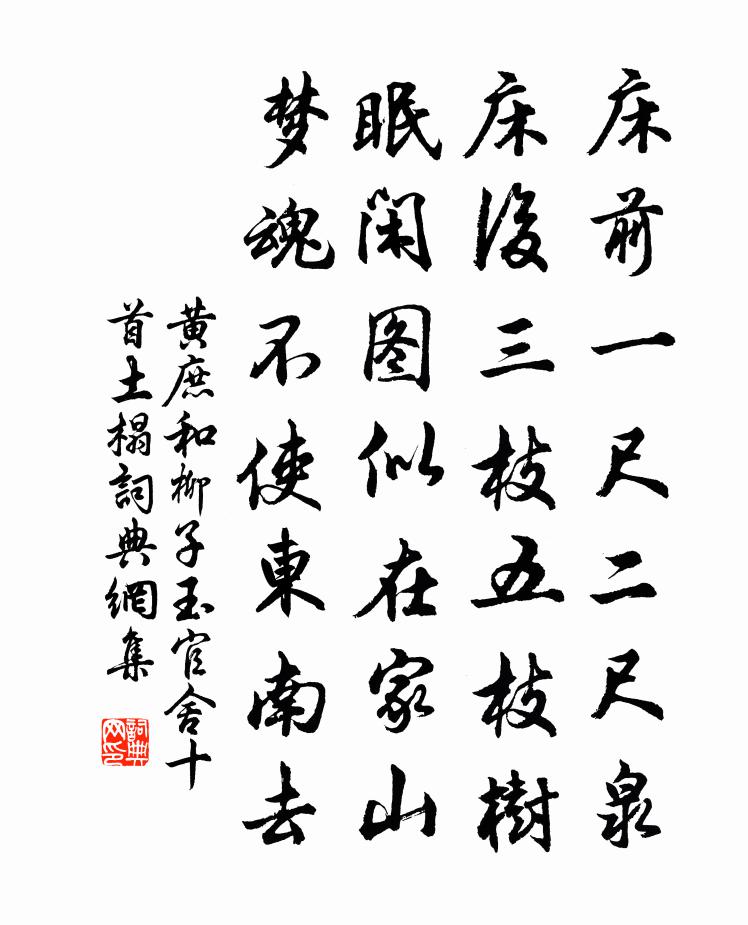 床前一尺二尺泉
床後三枝五枝樹
眠闲图似在家山
梦魂不使東南去
黄庶和柳子玉官舍十
首土榻詞典網集
詞典网印